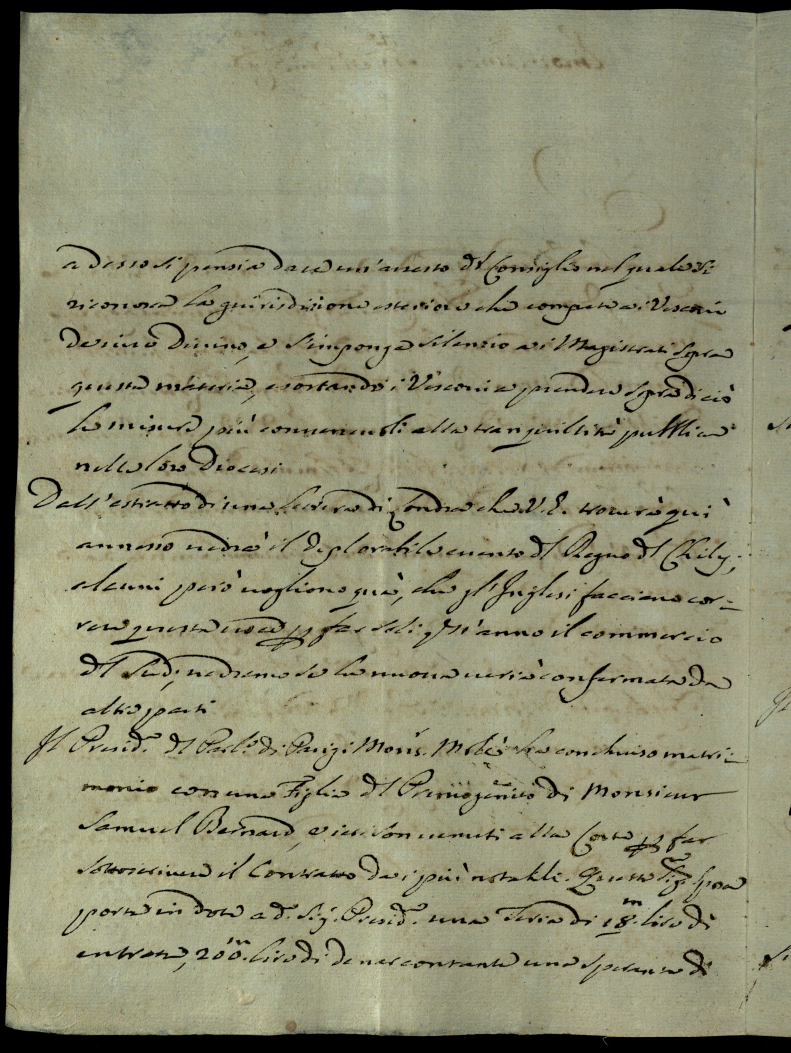 adesso si pensi a dare un'arresto dl Consiglio nel quale si
riconosca la giurisdizione esteriore che compete ai Vescovi
de iure Divino, e s'imponga silenzio ai Magistrati sopra
questa materia, esortando i Vescovi a prendere sopra di ciò
le misure più convenevoli alla tranquillità pubblica
nelle loro Diocesi
Dall'estratto di una lettera di Londra che V.E. troverà quì
annesso vedrà il deplorabile evento dl Regno dl Chily;
alcuni però vogliono quà, che gl'Inglesi facciano cor-
rere questa voce p far soli qst'anno il commercio
dl Sud; vedremo se la nuova verrà confermata da
altre parti
Il Presid.e dl Parl.o di Parigi Mons.r Molè ha conchiuso matri-
monio con una Figlia dl Primogenito di Monsieur
Samuel Bernard, e ieri son venuti alla Corte p far
sottoscrivere il Contratto da i più notabili. Questa Sig.ra sposa
porta in dote a d.o Sig. Presid.e una Terra di 18.m lire di
entrata, 200.m lire di denar contante una speranza di